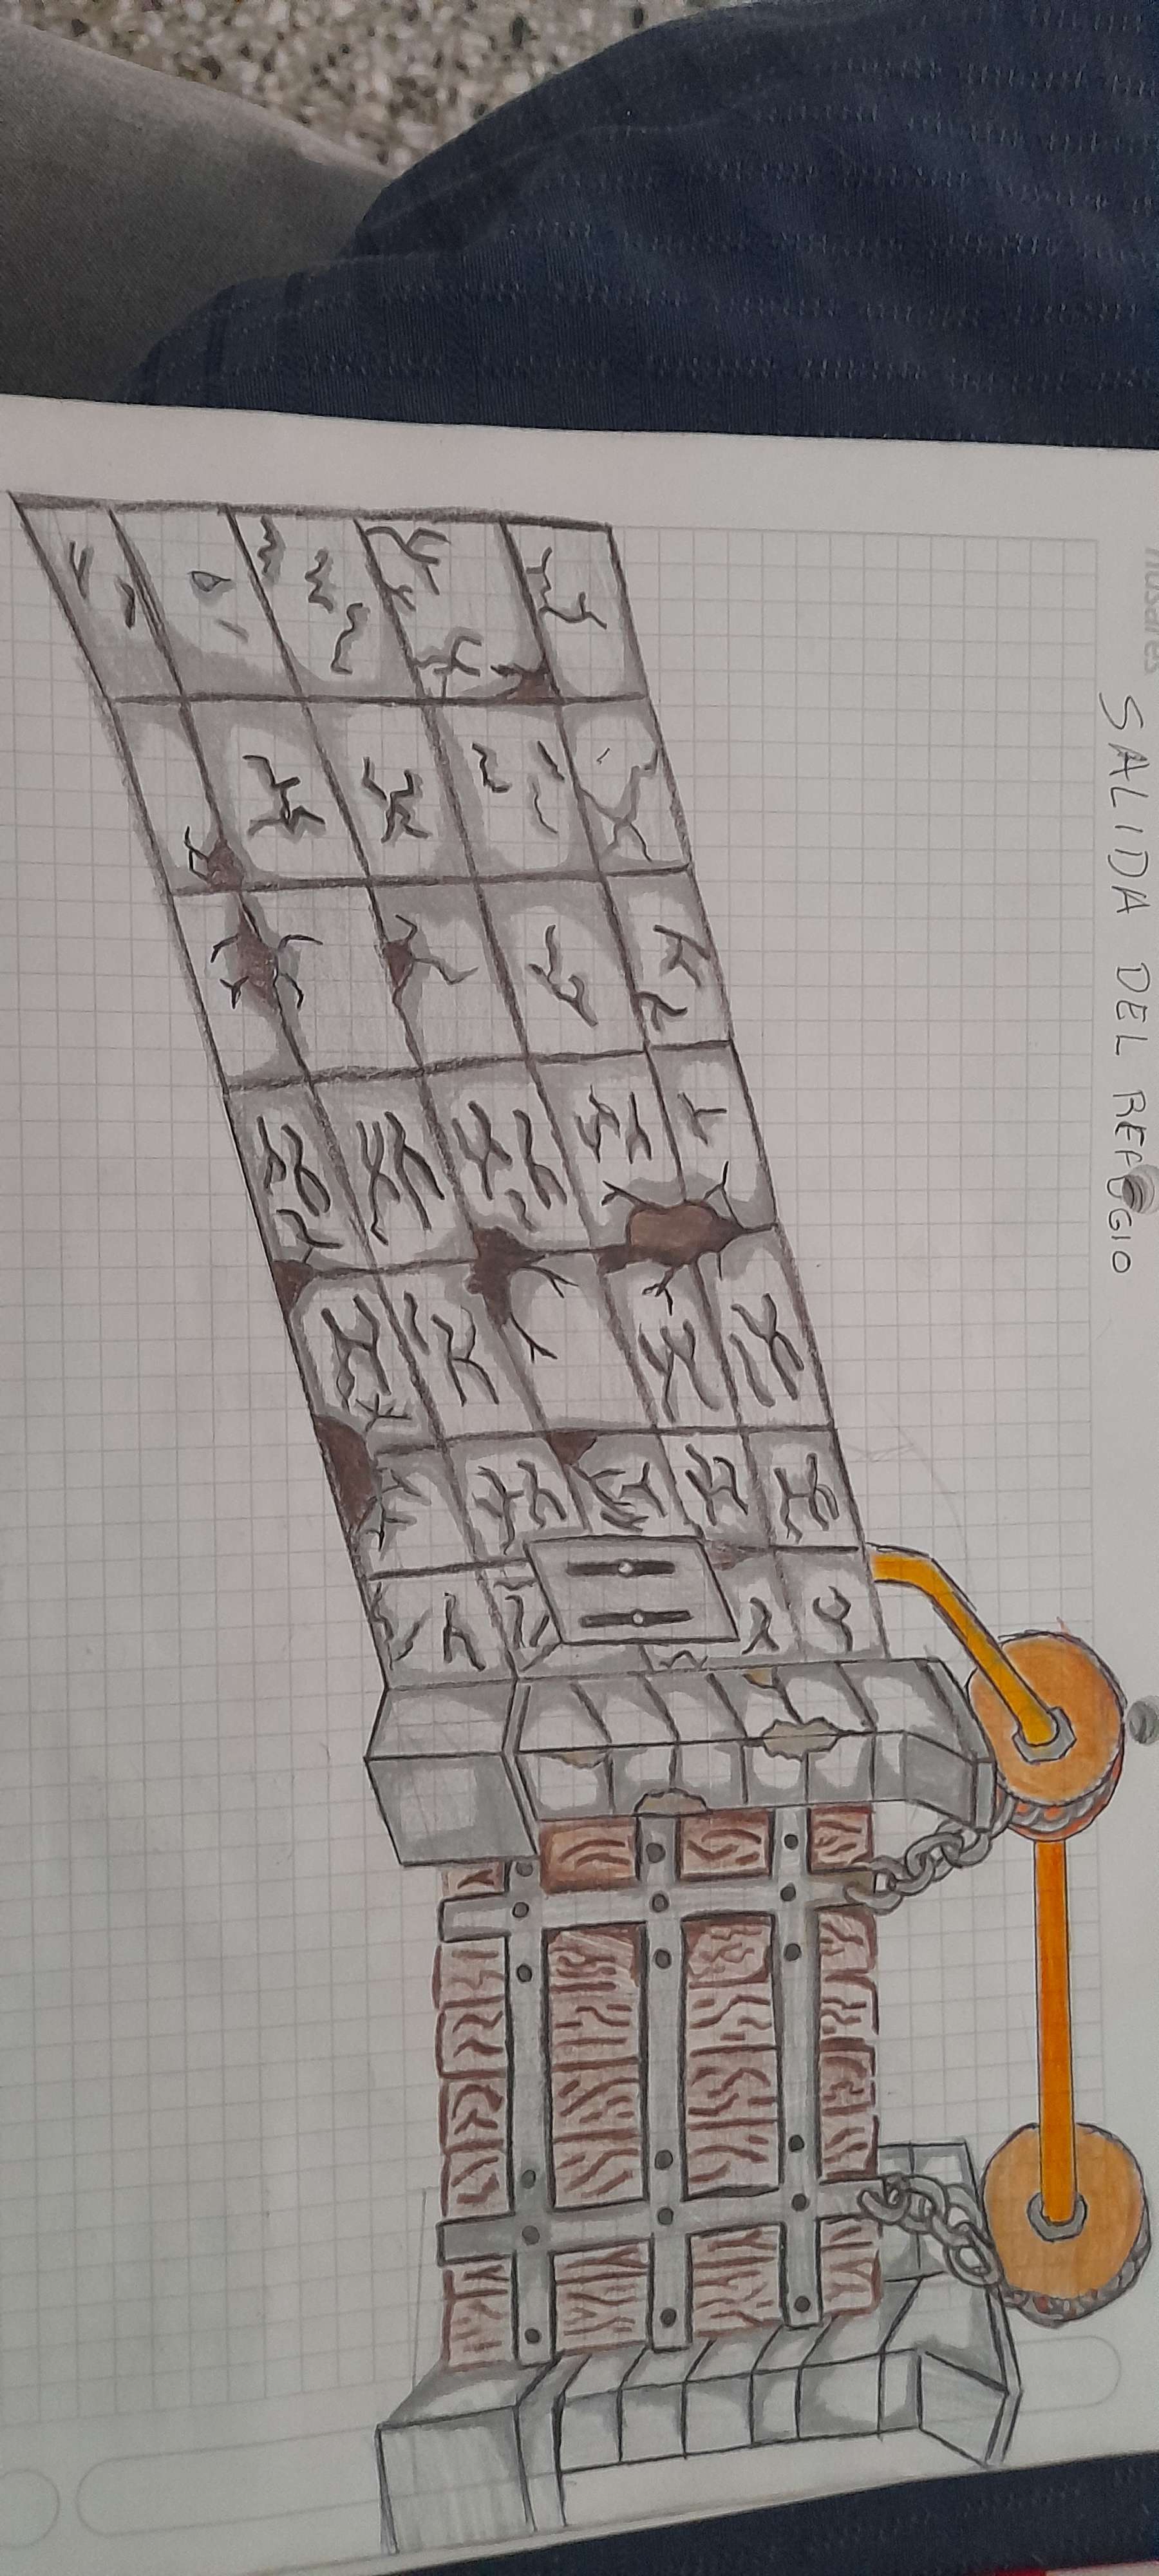 husares
SALIDA DEL REFUGIO